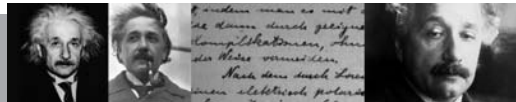 indem man es mit
dann durch geeigne
Komplikationen, ohn
der Weise vermeiden.
Nach dem durch Lore
einen elektrisch polaris